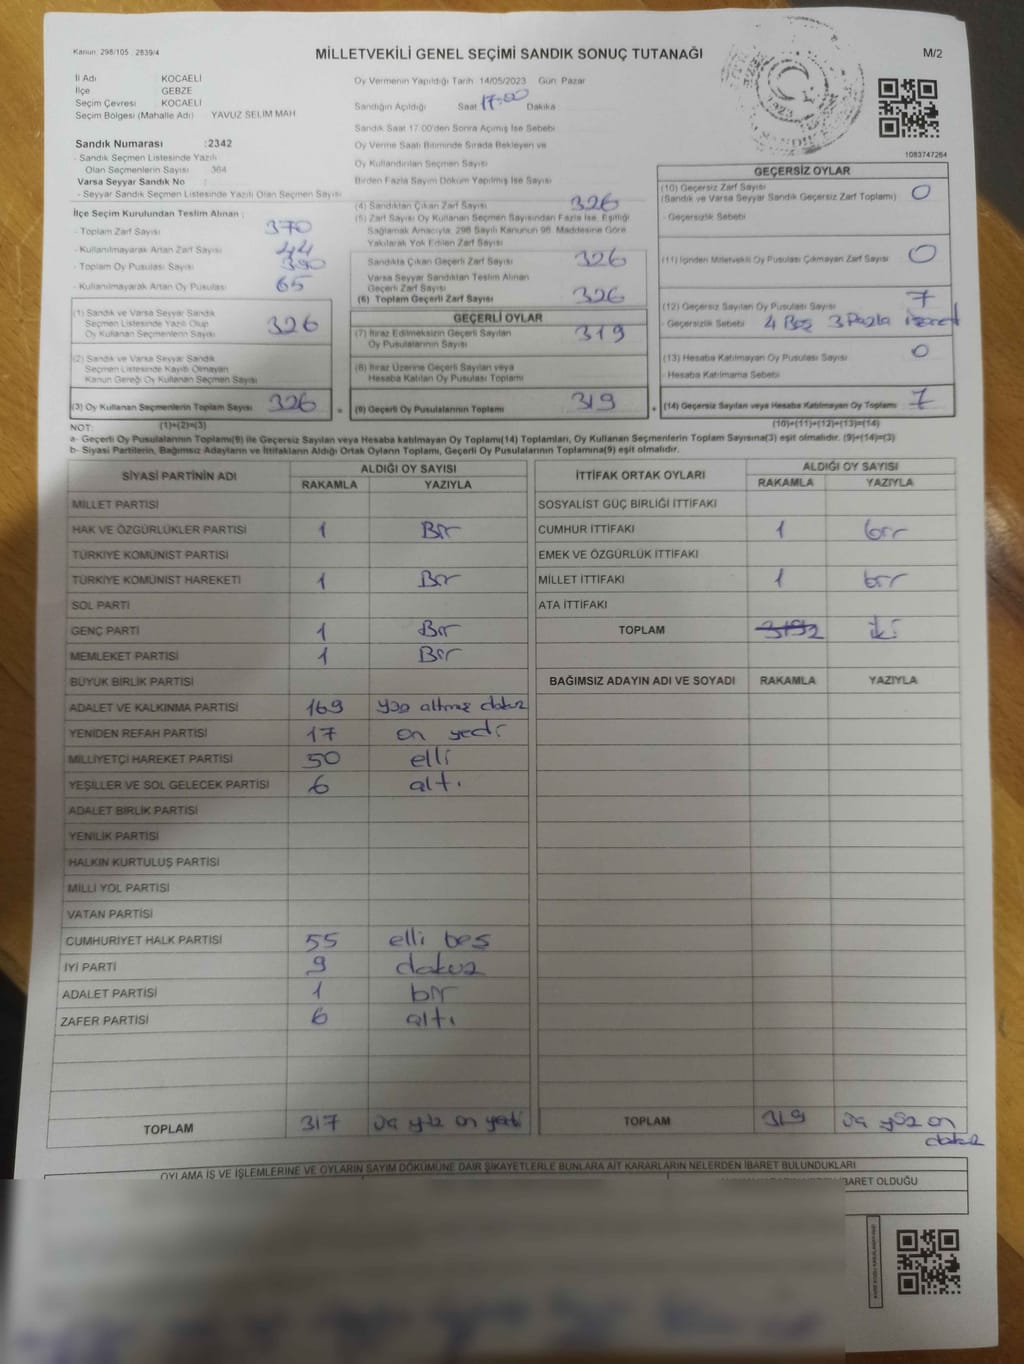 Kanun: 298/105 2839/4
MİLLETVEKİLİ GENEL SEÇİMİ SANDIK SONUÇ TUTANAĞI
M/2
İl Adı : KOCAELİ
İlçe : GEBZE
Seçim Çevresi : KOCAELİ
Seçim Bölgesi (Mahalle Adı) : YAVUZ SELİM MAH
Sandık Numarası :2342
- Sandık Seçmen Listesinde Yazılı
Olan Seçmenlerin Sayısı : 364
Varsa Seyyar Sandık No :
- Seyyar Sandık Seçmen Listesinde Yazılı Olan Seçmen Sayısı
İlçe Seçim Kurulundan Teslim Alınan ;
- Toplam Zarf Sayısı 370
- Kullanılmayarak Artan Zarf Sayısı 44
- Toplam Oy Pusulası Sayısı 390
- Kullanılmayarak Artan Oy Pusulası 65
(1) Sandık ve Varsa Seyyar Sandık
Seçmen Listesinde Yazılı Olup
Oy Kullanan Seçmenlerin Sayısı 326
(2) Sandık ve Varsa Seyyar Sandık
Seçmen Listesinde Kayıtlı Olmayan
Kanun Gereği Oy Kullanan Seçmen Sayısı
(3) Oy Kullanan Seçmenlerin Toplam Sayısı 326
(1)+(2)=(3)
Oy Vermenin Yapıldığı Tarih: 14/05/2023 Gün: Pazar
Sandığın Açıldığı Saat 17:00 Dakika
Sandık Saat 17:00'den Sonra Açımış İse Sebebi
Oy Verme Saati Bitiminde Sırada Bekleyen ve
Oy Kullandırılan Seçmen Sayısı
Birden Fazla Sayım Döküm Yapılmış İse Sayısı
(4) Sandıktan Çıkan Zarf Sayısı 326
(5) Zarf Sayısı Oy Kullanan Seçmen Sayısından Fazla İse, Eşitliği
Sağlamak Amacıyla, 298 Sayılı Kanunun 98. Maddesine Göre
Yakılarak Yok Edilen Zarf Sayısı
Sandıkta Çıkan Geçerli Zarf Sayısı 326
Varsa Seyyar Sandıktan Teslim Alınan
Geçerli Zarf Sayısı
(6) Toplam Geçerli Zarf Sayısı 326
GEÇERLİ OYLAR
(7) İtiraz Edilmeksizin Geçerli Sayılan
Oy Pusulalarının Sayısı 319
(8) İtiraz Üzerine Geçerli Sayılan veya
Hesaba Katılan Oy Pusulası Toplamı
(9) Geçerli Oy Pusulalarının Toplamı 319
1083747264
GEÇERSİZ OYLAR
(10) Geçersiz Zarf Sayısı
(Sandık ve Varsa Seyyar Sandık Geçersiz Zarf Toplamı) 0
- Geçersizlik Sebebi
(11) İçinden Milletvekili Oy Pusulası Çıkmayan Zarf Sayısı 0
(12) Geçersiz Sayılan Oy Pusulası Sayısı 7
- Geçersizlik Sebebi 4 Boş 3 Fazla
(13) Hesaba Katılmayan Oy Pusulası Sayısı 0
- Hesaba Katılmama Sebebi
(14) Geçersiz Sayılan veya Hesaba Katılmayan Oy Toplamı 7
(10)+(11)+(12)+(13)=(14)
NOT:
a- Geçerli Oy Pusulalarının Toplamı(9) ile Geçersiz Sayılan veya Hesaba katılmayan Oy Toplamı(14) Toplamları, Oy Kullanan Seçmenlerin Toplam Sayısına(3) eşit olmalıdır. (9)+(14)=(3)
b- Siyasi Partilerin, Bağımsız Adayların ve İttifakların Aldığı Ortak Oyların Toplamı, Geçerli Oy Pusulalarının Toplamına(9) eşit olmalıdır.
SİYASİ PARTİNİN ADI ALDIĞI OY SAYISI
RAKAMLA YAZIYLA
MİLLET PARTİSİ
HAK VE ÖZGÜRLÜKLER PARTİSİ 1 Bir
TÜRKİYE KOMÜNİST PARTİSİ
TÜRKİYE KOMÜNİST HAREKETİ 1 Bir
SOL PARTİ
GENÇ PARTİ 1 Bir
MEMLEKET PARTİSİ 1 Bir
BÜYÜK BİRLİK PARTİSİ
ADALET VE KALKINMA PARTİSİ 169 yüz altmış dokuz
YENİDEN REFAH PARTİSİ 17 on yedi
MİLLİYETÇİ HAREKET PARTİSİ 50 elli
YEŞİLLER VE SOL GELECEK PARTİSİ 6 altı
ADALET BİRLİK PARTİSİ
YENİLİK PARTİSİ
HALKIN KURTULUŞ PARTİSİ
MİLLİ YOL PARTİSİ
VATAN PARTİSİ
CUMHURİYET HALK PARTİSİ 55 elli beş
İYİ PARTİ 9 dokuz
ADALET PARTİSİ 1 bir
ZAFER PARTİSİ 6 altı
TOPLAM 317 üç yüz on yedi
İTTİFAK ORTAK OYLARI ALDIĞI OY SAYISI
RAKAMLA YAZIYLA
SOSYALİST GÜÇ BİRLİĞİ İTTİFAKI
CUMHUR İTTİFAKI 1 bir
EMEK VE ÖZGÜRLÜK İTTİFAKI
MİLLET İTTİFAKI 1 bir
ATA İTTİFAKI
TOPLAM 2 iki
BAĞIMSIZ ADAYIN ADI VE SOYADI RAKAMLA YAZIYLA
TOPLAM 319 üç yüz on
dokuz
OYLAMA İŞ VE İŞLEMLERİNE VE OYLARIN SAYIM DÖKÜMÜNE DAİR ŞİKAYETLERLE BUNLARA AİT KARARLARIN NELERDEN İBARET BULUNDUKLARI
İBARET OLDUĞU